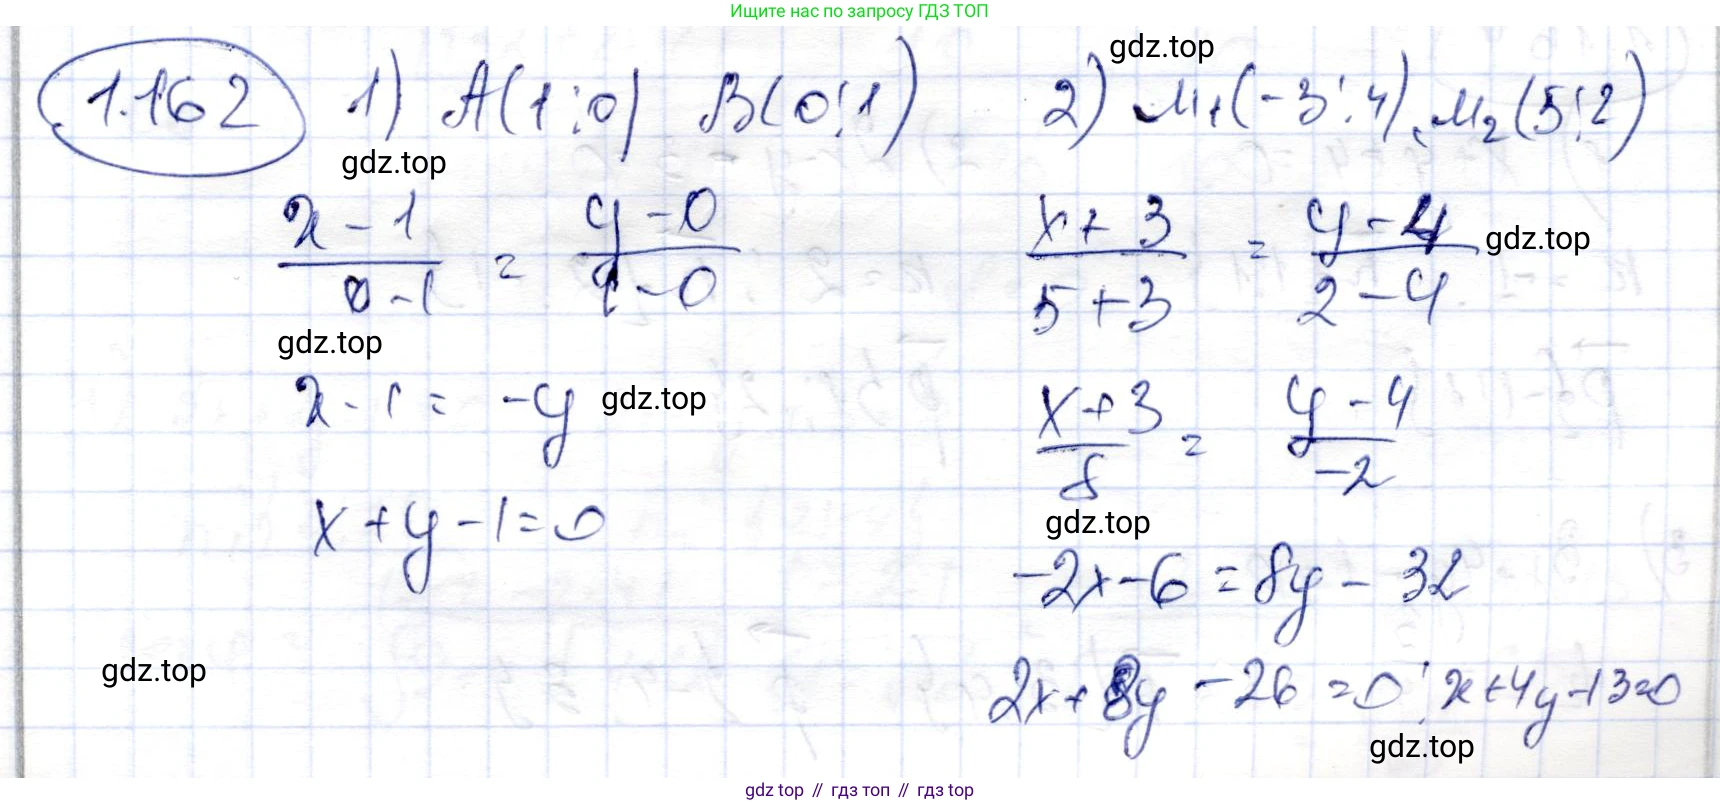 Ищите нас по запросу ГДЗ ТОП
1.162 1) A(1;0) B(0;1)
gdz.top
(x-1)/(0-1) = (y-0)/(1-0)
gdz.top
x-1 = -y gdz.top
x+y-1=0
gdz.top
gdz.top
2) M₁(-3;4), M₂(5;2)
(x+3)/(5+3) = (y-4)/(2-4) gdz.top
(x+3)/8 = (y-4)/-2
gdz.top
-2x-6 = 8y-32
2x+8y-26=0; x+4y-13=0
gdz.top
gdz top // гдз топ // гдз top